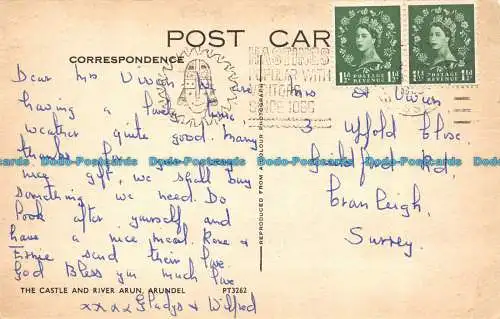 POST CAR
CORRESPONDENCE
Dear Mrs Vivers we are
having a lovely time
weather quite good. Many
thanks for
nice gift, we shall buy
something we need. Do
look after yourself and
have a nice meal. Rene &
Ernie send their love
God Bless you much love
xxxx Gladys & Wilfred
THE CASTLE AND RIVER ARUN, ARUNDEL PT3262
REPRODUCED FROM A COLOUR PHOTOGRAPH
HASTINGS
POPULAR WITH
VISITORS
SINCE 1066
1½d POSTAGE REVENUE 1½d
1½d POSTAGE REVENUE 1½d
Mrs A Vivers
3 Ufford Close
Guildford Rd,
Cranleigh,
Surrey.
Dodo-Postcards Dodo-Postcards Dodo-Postcards Dodo-Postcards